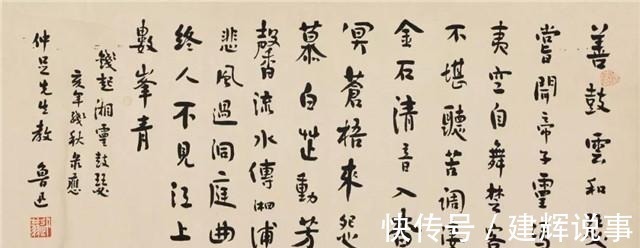 善鼓雲和瑟
嘗聞帝子靈
夷空自舞楚客
不堪聽苦調淒
金石清音入杳
冥蒼梧來怨
慕白芷動芳
馨流水傳湘浦
悲風過洞庭曲
終人不見江上
數峯青
錢起湘靈鼓瑟
亥年殘秋录應
仲足先生教 魯迅
快传号／建辉说事